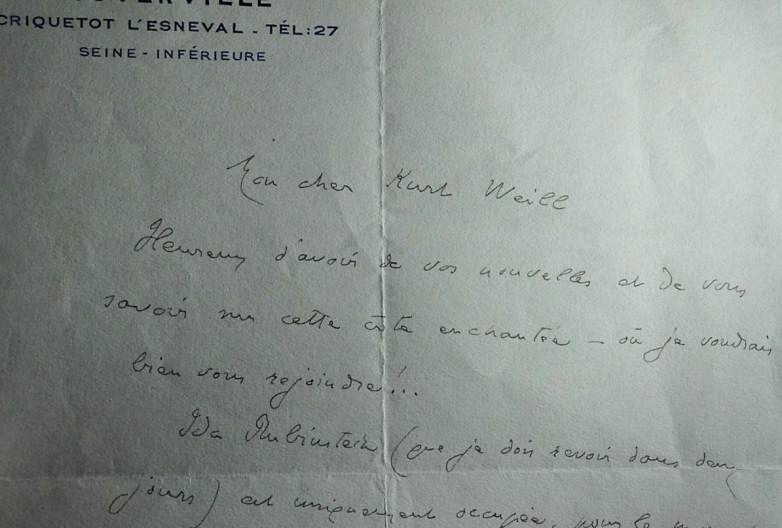 CRIQUETOT L'ESNEVAL - TÉL: 27
SEINE - INFÉRIEURE
Mon cher Kurt Weill
Heureux d'avoir de vos nouvelles et de vous
savoir sur cette côte enchantée – où je voudrais
bien vous rejoindre!..
Ida Rubinstein (que je dois revoir dans deux
jours) est uniquement occupée, pour le